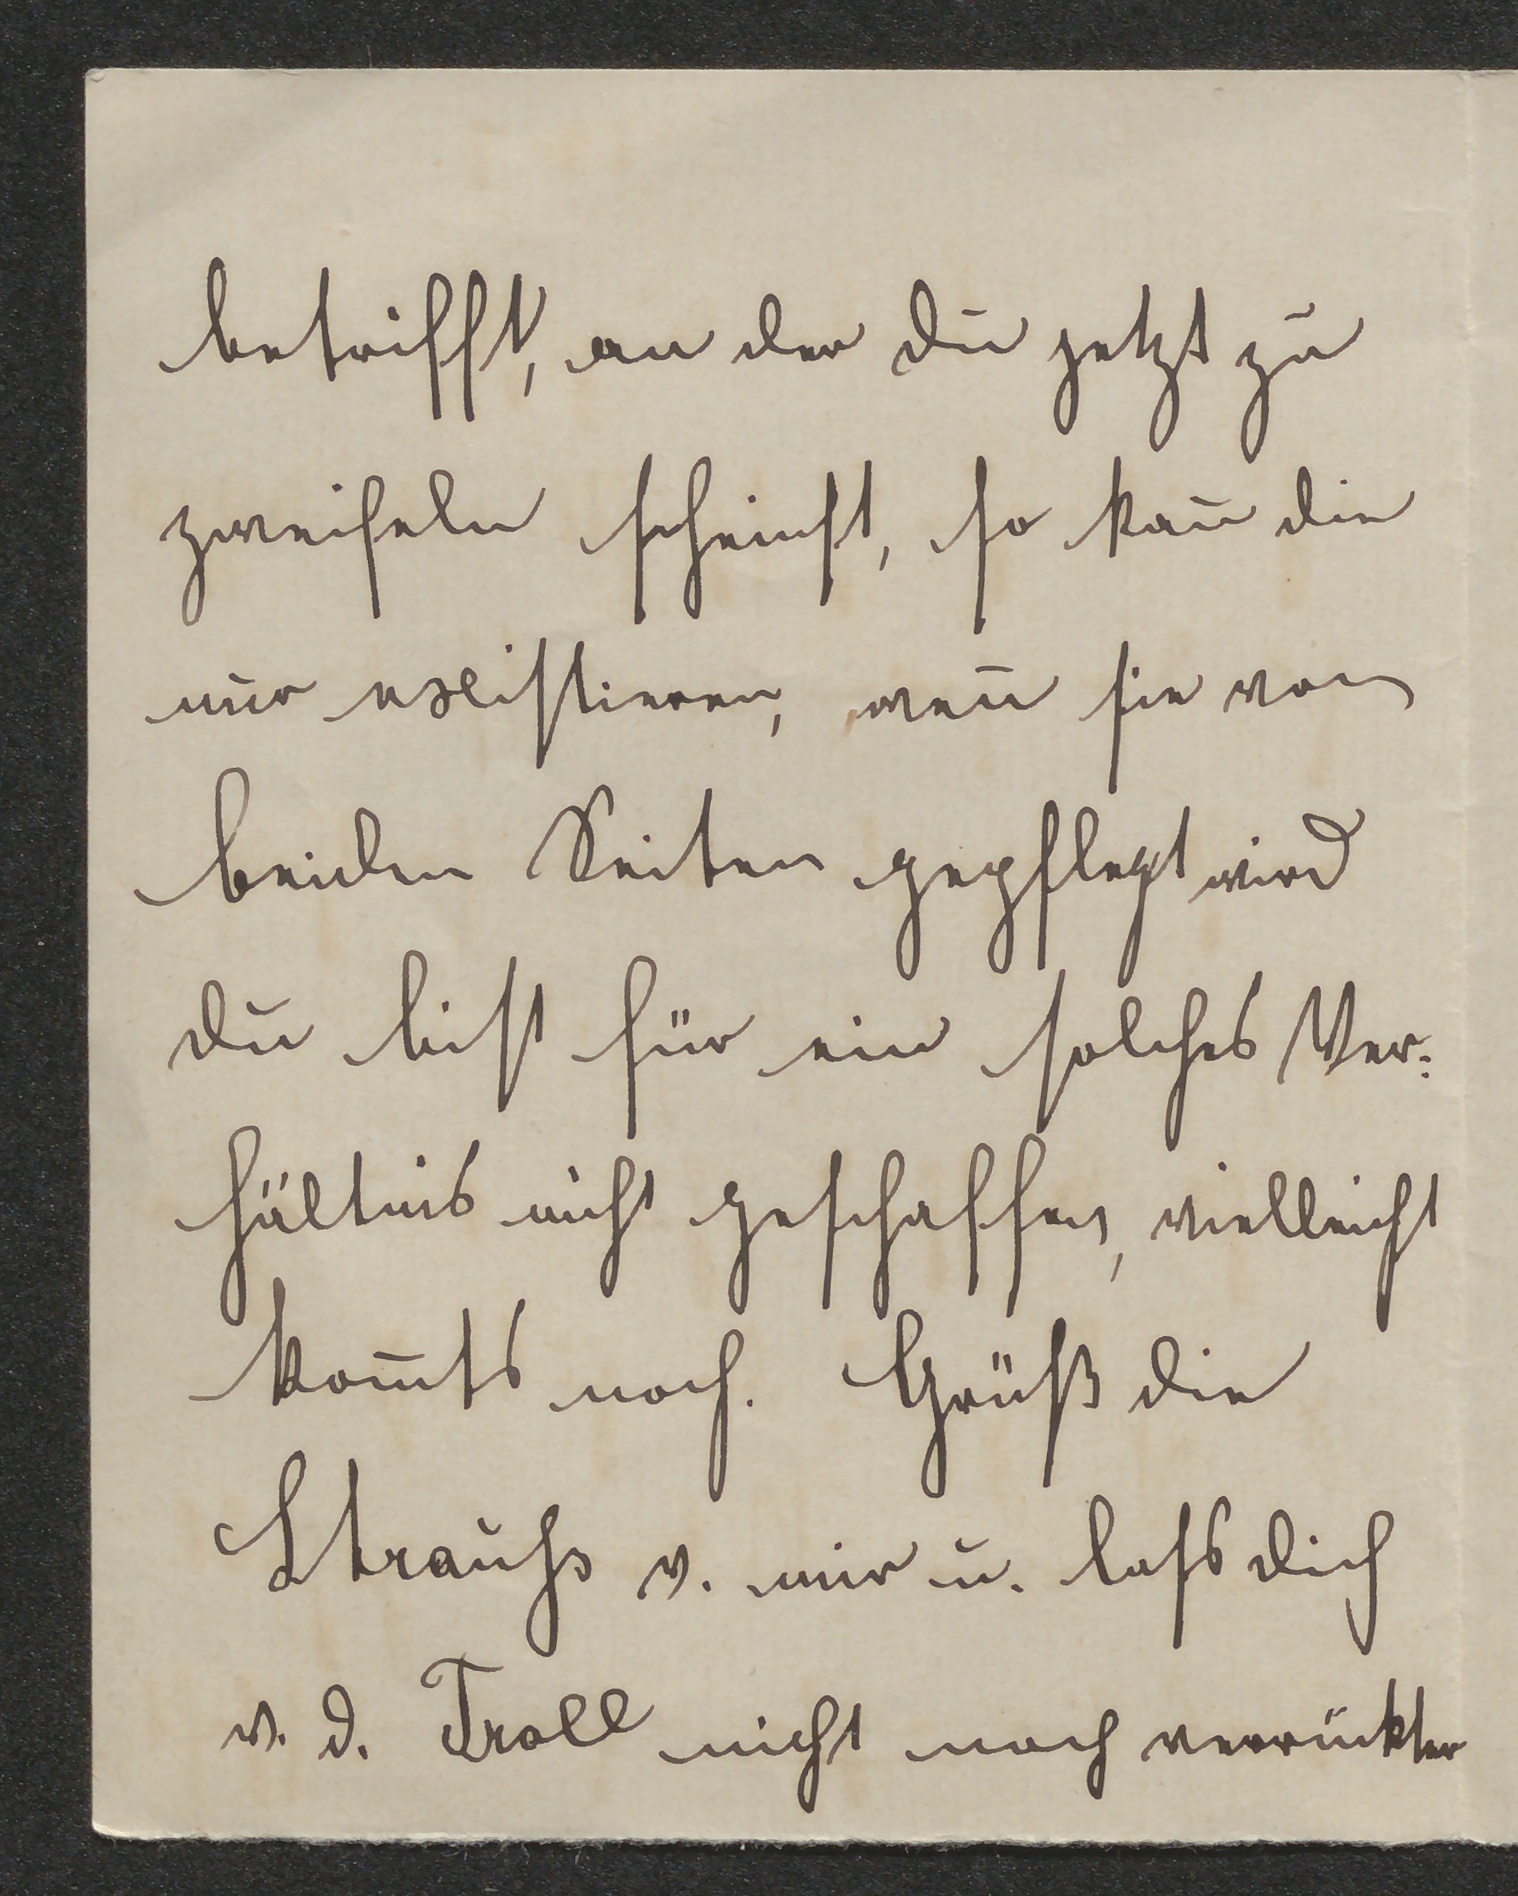 betrifft, an der du jetzt zu
zweifeln scheinst, so kan̄ die
nur existieren, wen̄ sie von
beiden Seiten gepflegt wird
du bist für ein solches Ver:
hältnis nicht geschaffen, vielleicht
kom̄ts noch. Grüß die
Strauss v. mir u. lass dich
v. d. Troll nicht noch verrückter